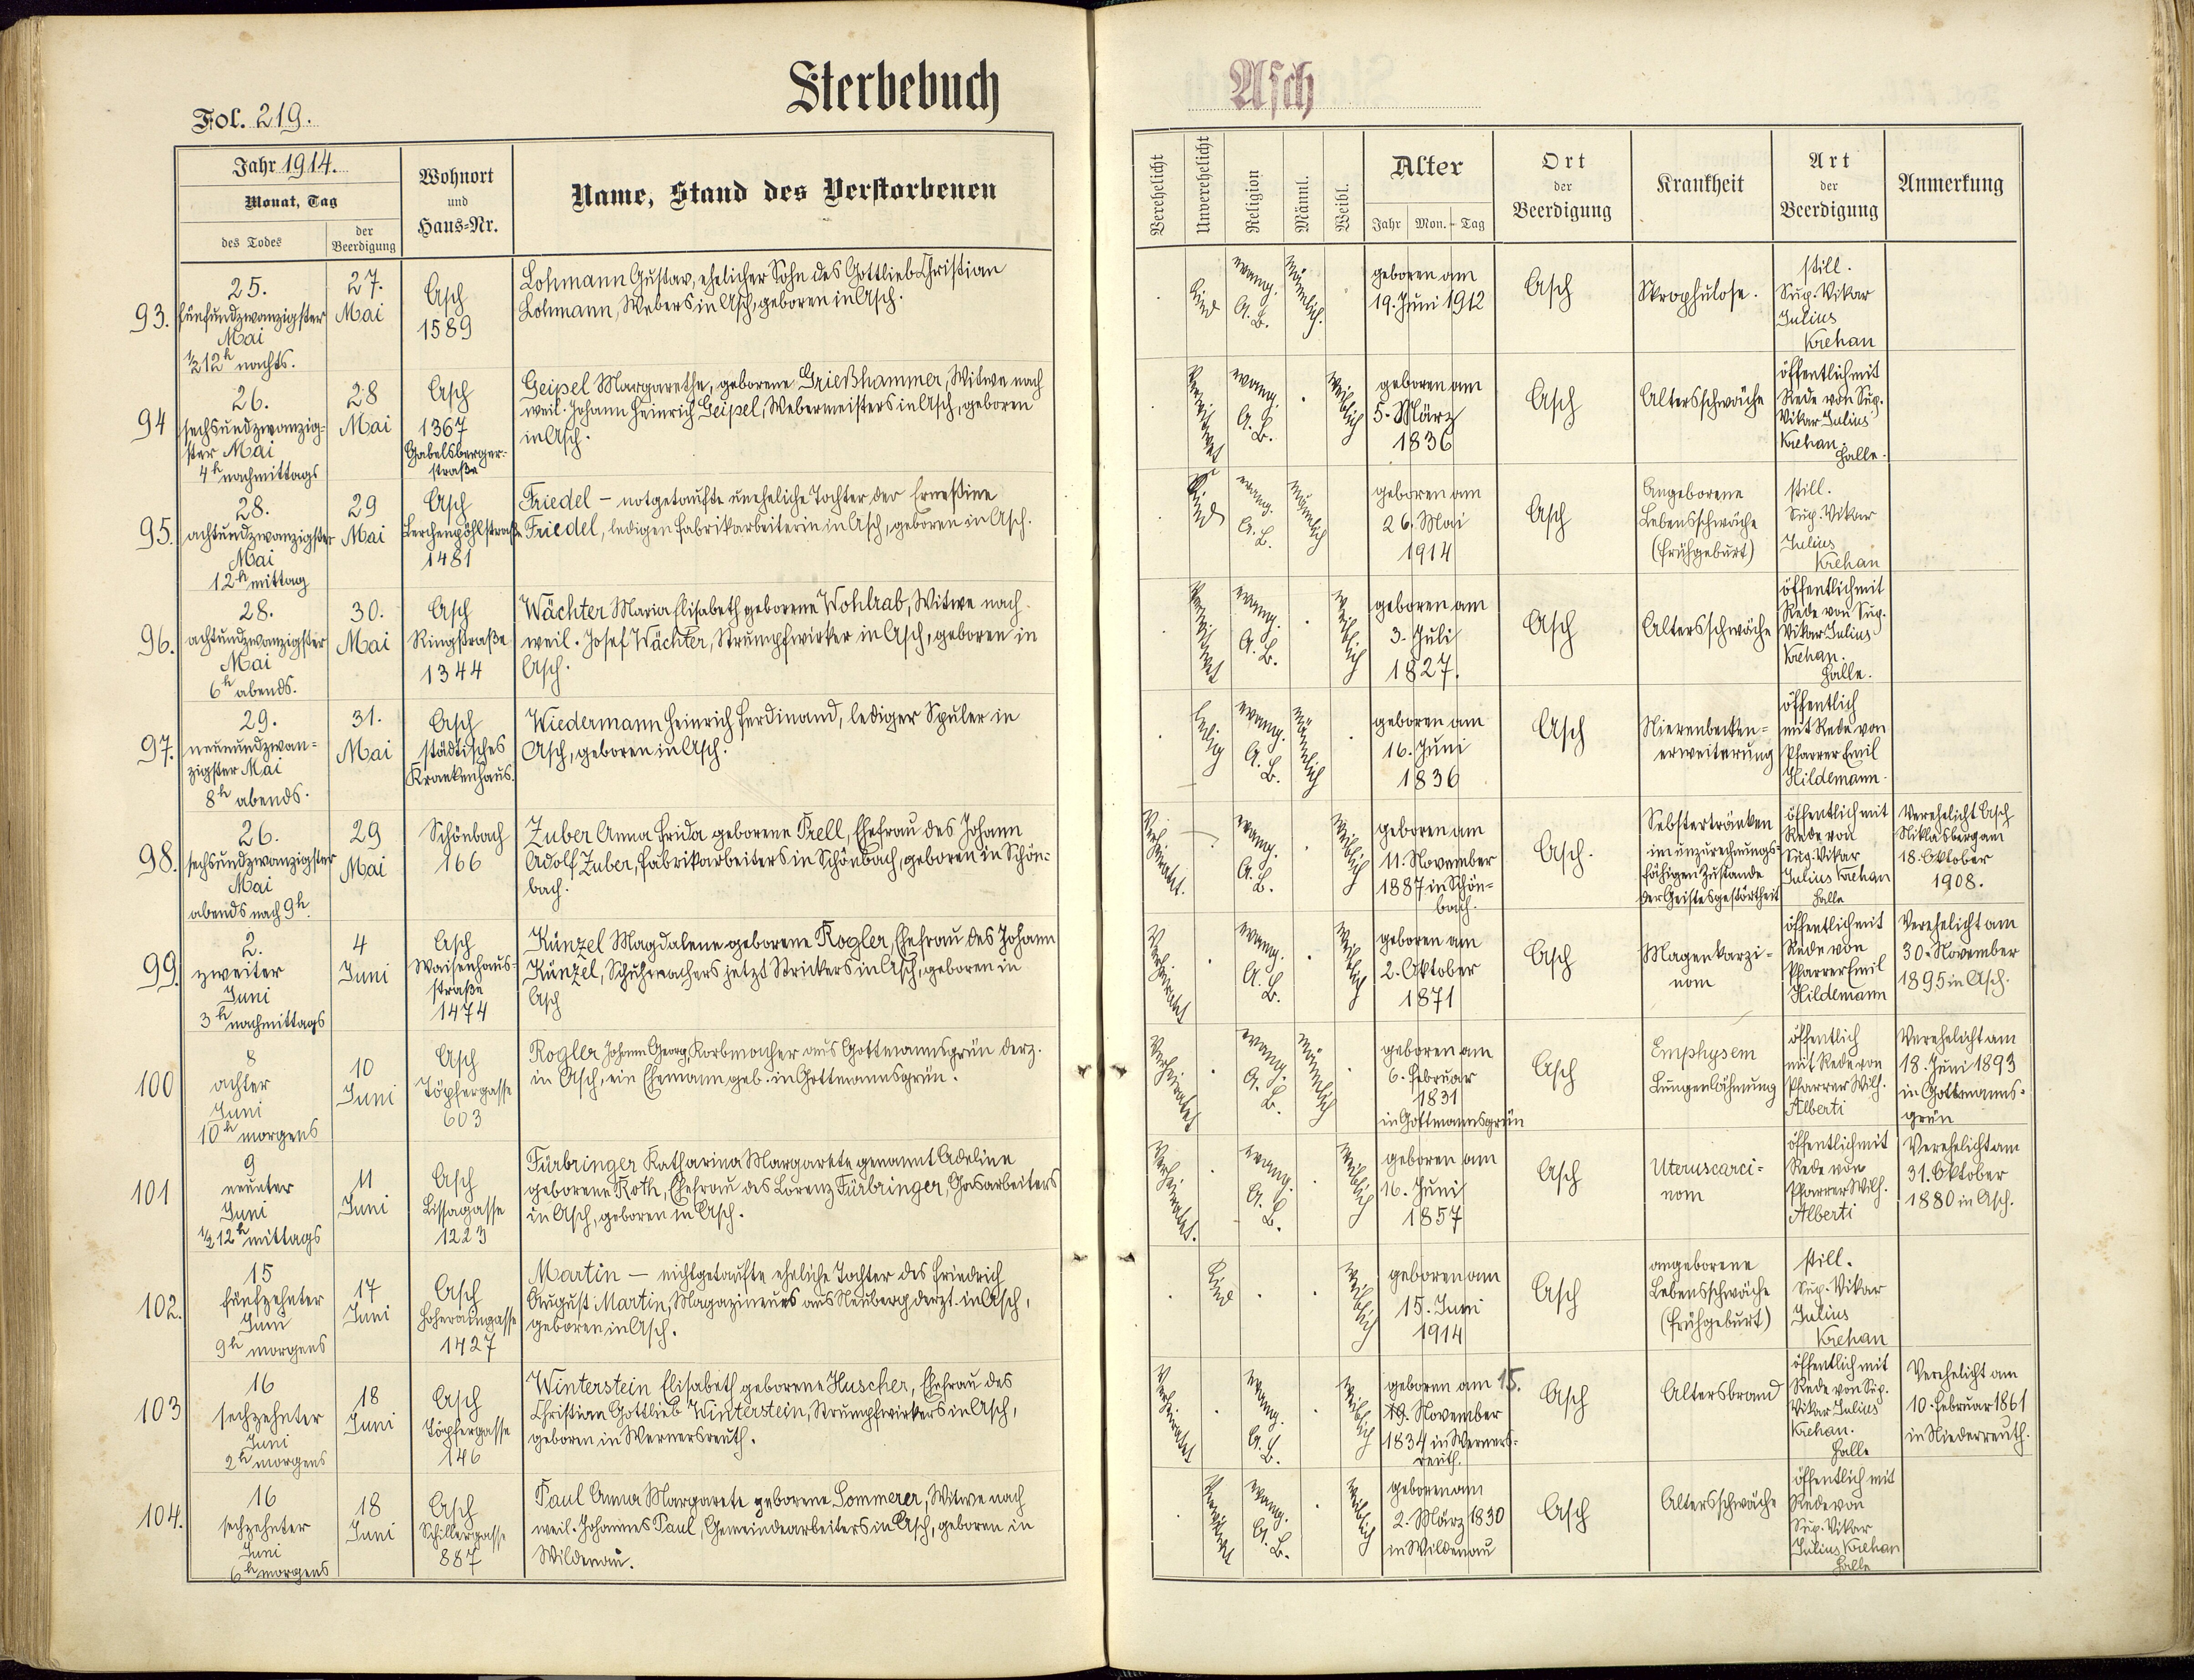 Sterbebuch
Asch
Fol. 219.
Jahr 1914.
Monat, Tag
des Todes
der Beerdigung
Wohnort
und
Haus-Nr.
Name, Stand des Verstorbenen
Verehelicht
Unverehelicht
Religion
Männl.
Weibl.
Alter
Jahr
Mon.
Tag
Ort
der
Beerdigung
Krankheit
Art
der
Beerdigung
Anmerkung
93.
25.
fünfundzwanzigster
Mai
½12h nachts.
27.
Mai
Asch
1589
Lohmann Gustav, ehelicher Sohn des Gottlieb Christian
Lohmann, Webers in Asch, geboren in Asch.
Kind
evang.
A. B.
männlich.
geboren am
19. Juni 1912
Asch
Skrophulose.
still.
Sup. Vikar
Julius
Krehan
94
26.
sechsundzwanzig-
ster Mai
4h nachmittags
28
Mai
Asch
1367
Gabelsberger-
straße
Geipel Margarethe, geborene Grießhammer, Witwe nach
weil. Johann Heinrich Geipel, Webermeisters in Asch, geboren
in Asch.
Verwitwet
evang.
A. B.
weiblich
geboren am
5. März
1836
Asch
Altersschwäche
öffentlich mit
Rede von Sup.
Vikar Julius
Krehan.
Halle.
95.
28.
achtundzwanzigster
Mai
12h mittag
29
Mai
Asch
Lerchenpöhlstraße
1481
Friedel – notgetaufte uneheliche Tochter der Ernestine
Friedel, ledigen Fabrikarbeiterin in Asch, geboren in Asch.
Kind
evang.
A. B.
männlich
geboren am
26. Mai
1914
Asch
Angeborene
Lebensschwäche
(Frühgeburt)
still.
Sup. Vikar
Julius
Krehan
96.
28.
achtundzwanzigster
Mai
6h abends.
30.
Mai
Asch
Ringstraße
1344
Wächter Maria Elisabeth geborene Wohlrab, Witwe nach
weil. Josef Wächter, Strumpfwirker in Asch, geboren in
Asch.
Verwitwet
evang.
A. B.
weiblich
geboren am
3. Juli
1827.
Asch
Altersschwäche
öffentlich mit
Rede von Sup.
Vikar Julius
Krehan.
Halle.
97.
29.
neunundzwan-
zigster Mai
8h abends.
31.
Mai
Asch
städtisches
Krankenhaus.
Wiedermann Heinrich Ferdinand, lediger Spuler in
Asch, geboren in Asch.
ledig
evang.
A. B.
männlich
geboren am
16. Juni
1836
Asch
Nierenbecken-
erweiterung
öffentlich
mit Rede von
Pfarrer Emil
Hildemann.
98.
26.
sechsundzwanzigster
Mai
abends nach 9h.
29
Mai
Schönbach
166
Zuber Anna Frida geborene Prell, Ehefrau des Johann
Adolf Zuber, Fabrikarbeiters in Schönbach, geboren in Schön-
bach.
Verheiratet.
evang.
A. B.
weiblich
geboren am
11. November
1887 in Schön-
bach.
Asch.
Selbstertränken
im unzurechnungs-
fähigen Zustande
der Geistesgestörtheit
öffentlich mit
Rede von
Sup. Vikar
Julius Krehan
Halle
Verehelicht Asch
Niklasberg am
18. Oktober
1908.
99.
2.
zweiter
Juni
3h nachmittags
4
Juni
Asch
Waisenhaus-
straße
1474
Künzel Magdalene geborene Rogler, Ehefrau des Johann
Künzel, Schuhmachers jetzt Strickers in Asch, geboren in
Asch
Verheiratet
evang.
A. B.
weiblich
geboren am
2. Oktober
1871
Asch
Magenkarzi-
nom
öffentlich mit
Rede von
Pfarrer Emil
Hildemann
Verehelicht am
30. November
1895 in Asch.
100
8
achter
Juni
10h morgens
10
Juni
Asch
Töpfergasse
603
Rogler Johann Georg, Korbmacher aus Gottmannsgrün derz.
in Asch, ein Ehemann geb. in Gottmannsgrün.
Verheiratet
evang.
A. B.
männlich
geboren am
6. Februar
1831
in Gottmannsgrün
Asch
Emphysem
Lungenlähmung
öffentlich
mit Rede von
Pfarrer Wilh.
Alberti
Verehelicht am
18. Juni 1893
in Gottmanns-
grün
101
9
neunter
Juni
½12h mittags
11
Juni
Asch
Lissagasse
1223
Fürbringer Katharina Margarete genannt Adeline
geborene Roth, Ehefrau des Lorenz Fürbringer, Gasarbeiters
in Asch, geboren in Asch.
Verheiratet.
evang.
A. B.
weiblich
geboren am
16. Juni
1857
Asch
Uteruscarci-
nom
öffentlich mit
Rede von
Pfarrer Wilh.
Alberti
Verehelicht am
31. Oktober
1880 in Asch.
102.
15
fünfzehnter
Juni
9h morgens
17
Juni
Asch
Hoheraingasse
1427
Martin – nichtgetaufte eheliche Tochter des Friedrich
August Martin, Magazineurs aus Neuberg derzt. in Asch,
geboren in Asch.
Kind
weiblich
geboren am
15. Juni
1914
Asch
angeborene
Lebensschwäche
(Frühgeburt)
still.
Sup. Vikar
Julius
Krehan
103
16
sechzehnter
Juni
2h morgens
18
Juni
Asch
Töpfergasse
146
Winterstein Elisabeth geborene Huscher, Ehefrau des
Christian Gottlieb Winterstein, Strumpfwirkers in Asch,
geboren in Wernersreuth.
Verheiratet
evang.
A. B.
weiblich
geboren am 15.
19. November
1834 in Werners-
reuth.
Asch
Altersbrand
öffentlich mit
Rede von Sup.
Vikar Julius
Krehan.
Halle
Verehelicht am
10. Februar 1861
in Niederreuth.
104.
16
sechzehnter
Juni
6h morgens
18
Juni
Asch
Schillergasse
887
Paul Anna Margarete geborene Sommerer, Witwe nach
weil. Johannes Paul, Gemeindearbeiters in Asch, geboren in
Wildenau.
Verwitwet
evang.
A. B.
weiblich
geboren am
2. März 1830
in Wildenau
Asch
Altersschwäche
öffentlich mit
Rede von
Sup. Vikar
Julius Krehan
Halle